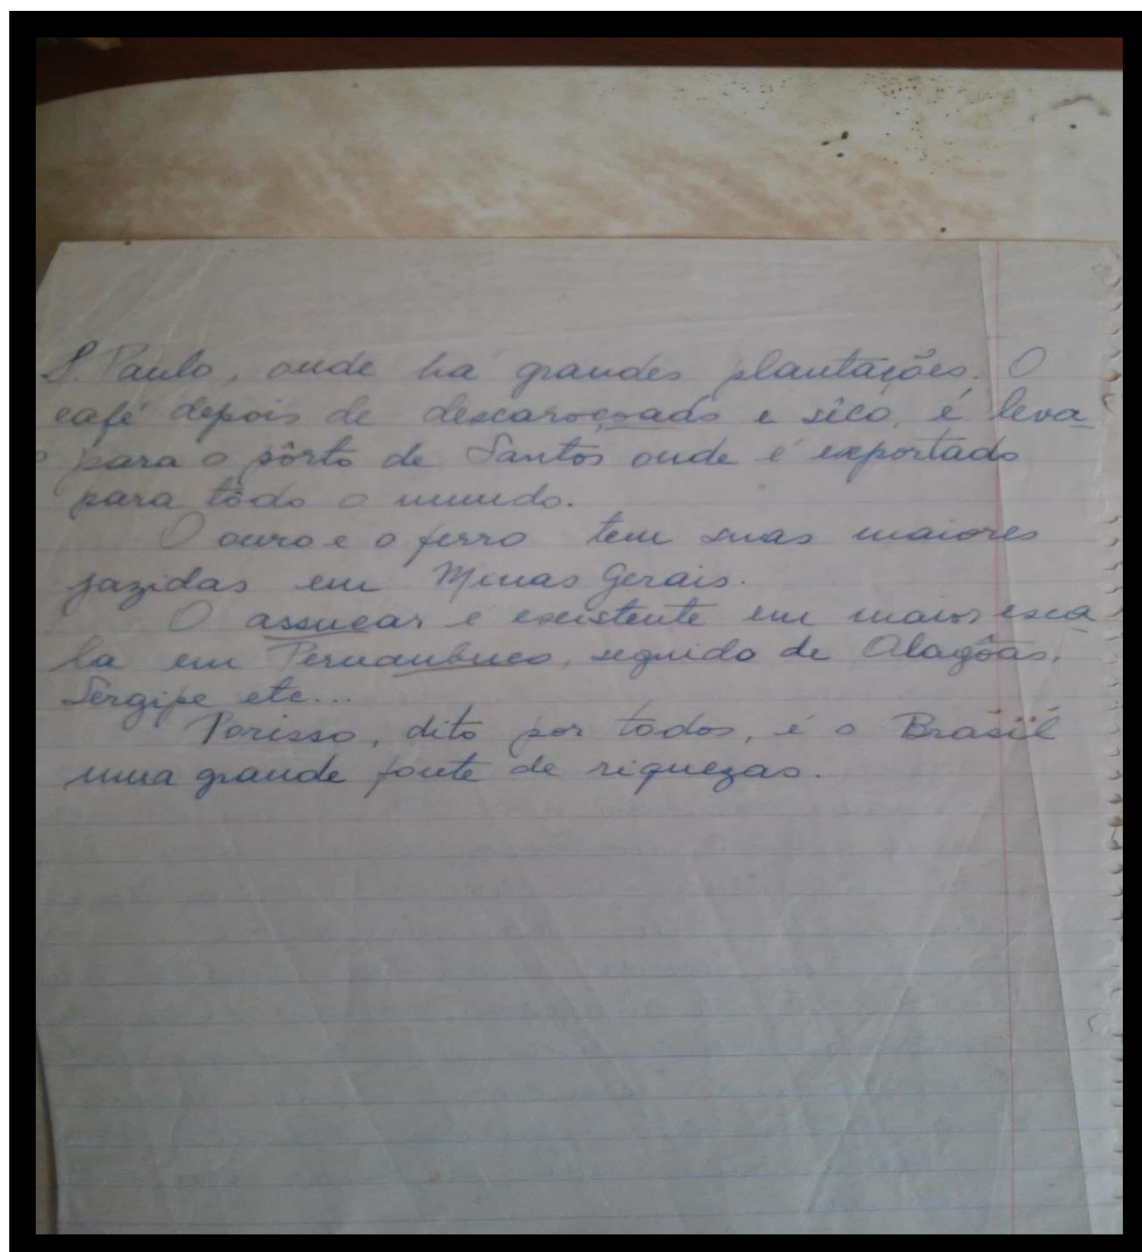 S. Paulo, onde ha grandes plantações. O
café depois de descaroçoado e sêco, é leva_
o para o pôrto de Santos onde é exportado
para tôdo o mundo.
O ouro e o ferro tem suas maiores
jazidas em Minas Gerais.
O assucar é existente em maior esca_
la em Pernambuco, seguido de Alagôas,
Sergipe etc...
Porisso, dito por todos, é o Brasil
uma grande fonte de riquezas.